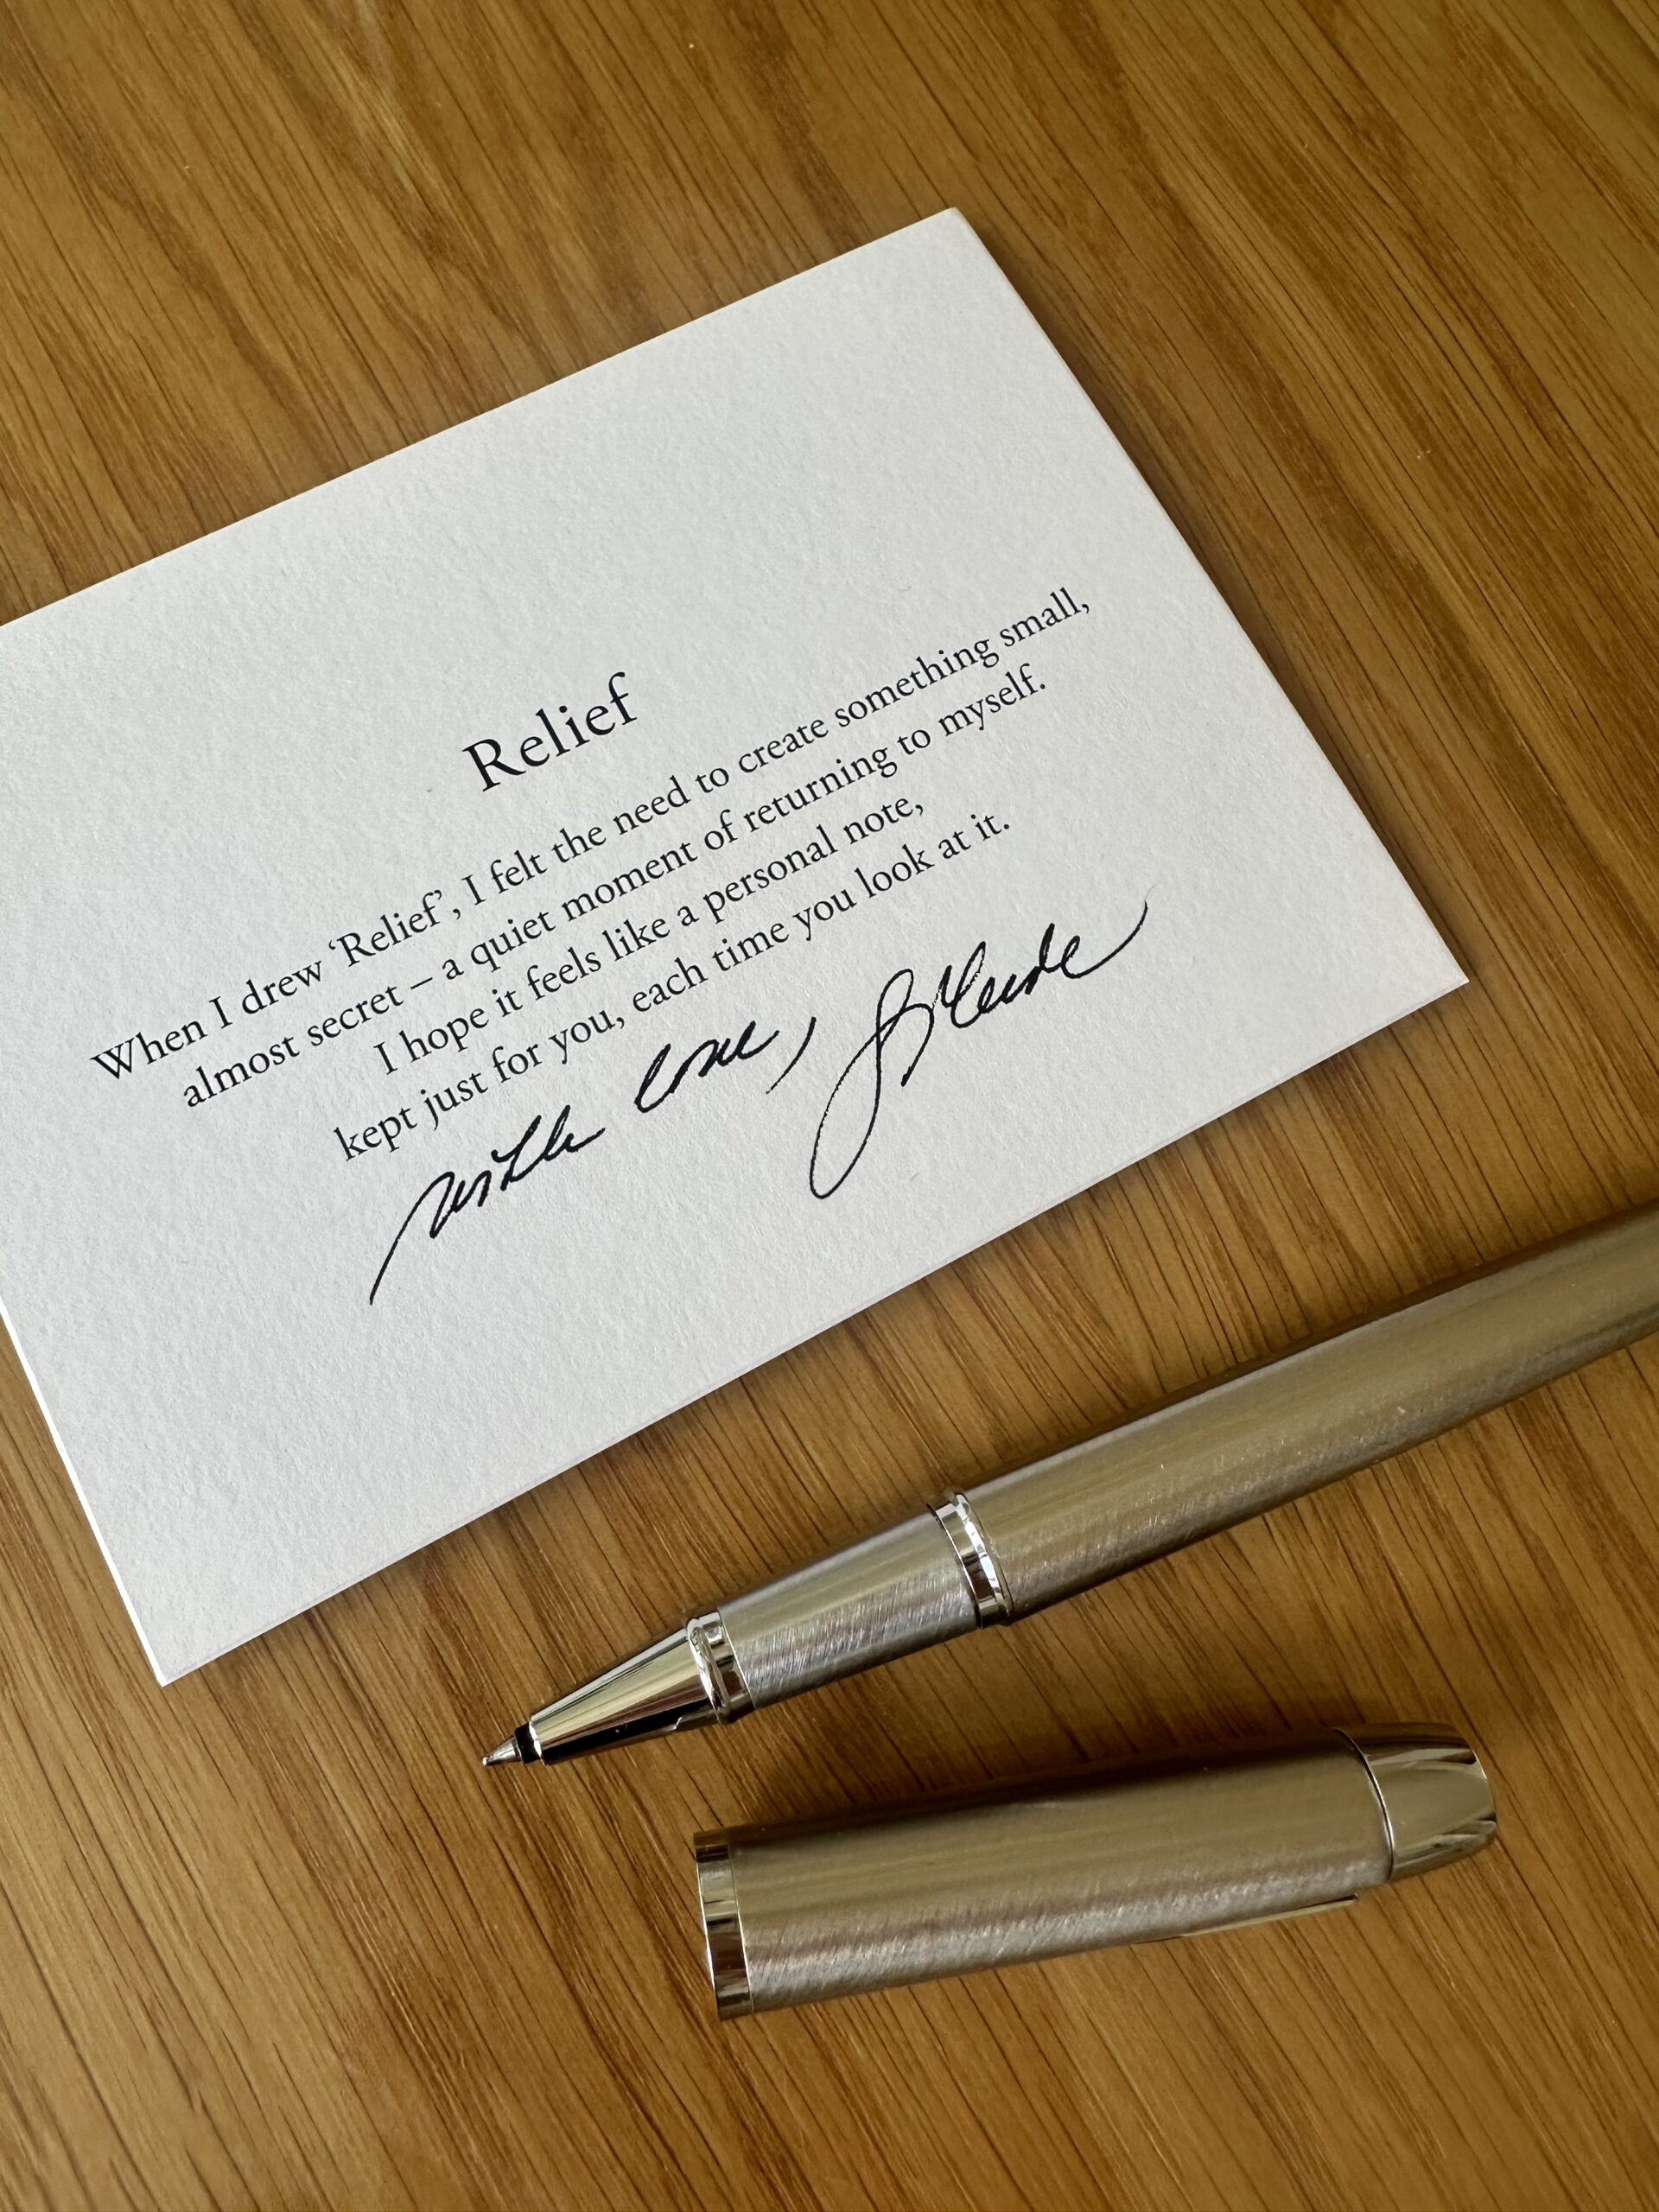 Relief
When I drew ‘Relief’, I felt the need to create something small,
almost secret – a quiet moment of returning to myself.
I hope it feels like a personal note,
kept just for you, each time you look at it.
with love,